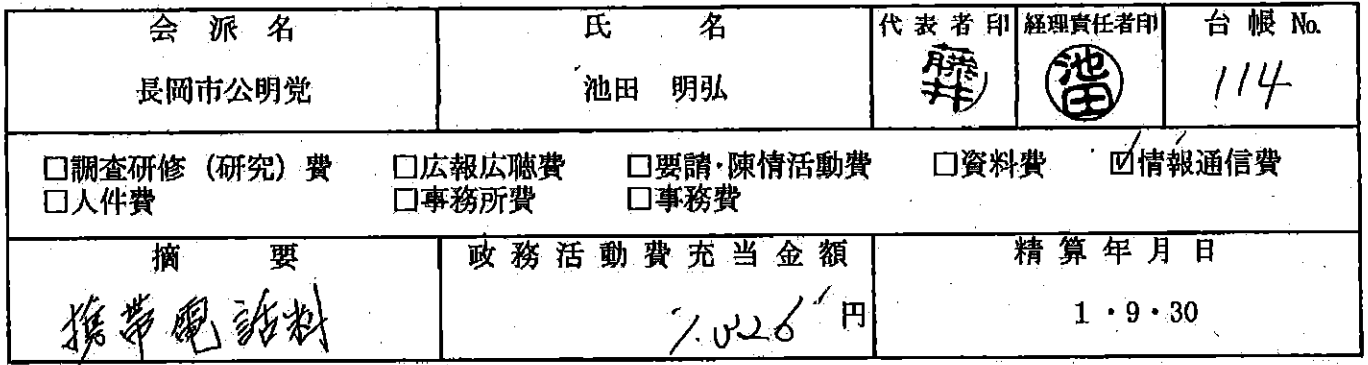 会派名 氏名 代表者印 経理責任者印 台帳No.
長岡市公明党 池田 明弘 藤井 池田 114
□調査研修(研究)費 □広報広聴費 □要請・陳情活動費 □資料費 ☑情報通信費
□人件費 □事務所費 □事務費
摘要 政務活動費充当金額 精算年月日
携帯電話料 7.026円 1・9・30